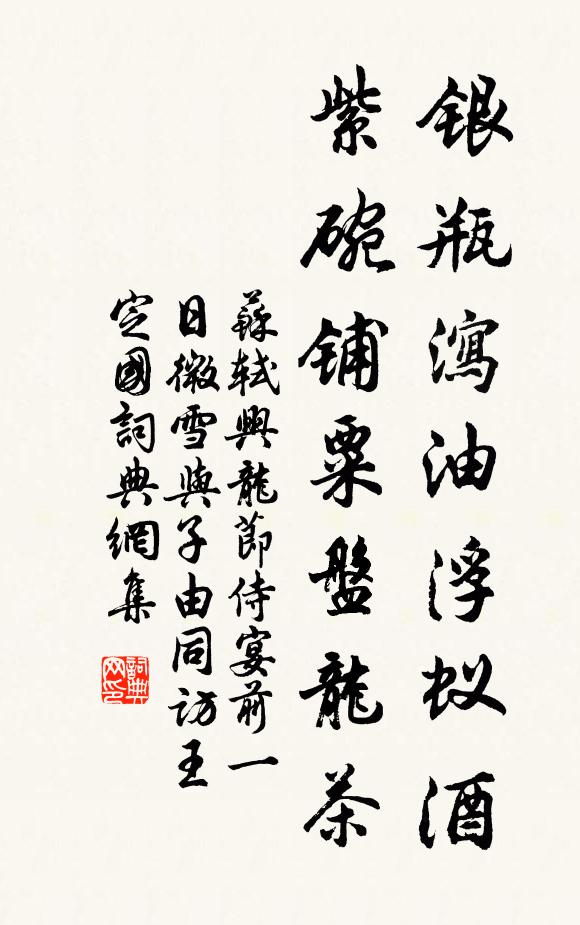 银瓶瀉油浮蚁酒
紫碗铺粟盤龍茶
蘇軾興龍節侍宴前一
日微雪與子由同訪王
定國詞典網集
詞典网印